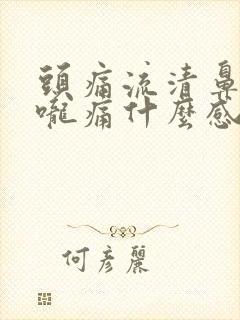 頭痛流清鼻
嚨痛什麼感
何彥麗